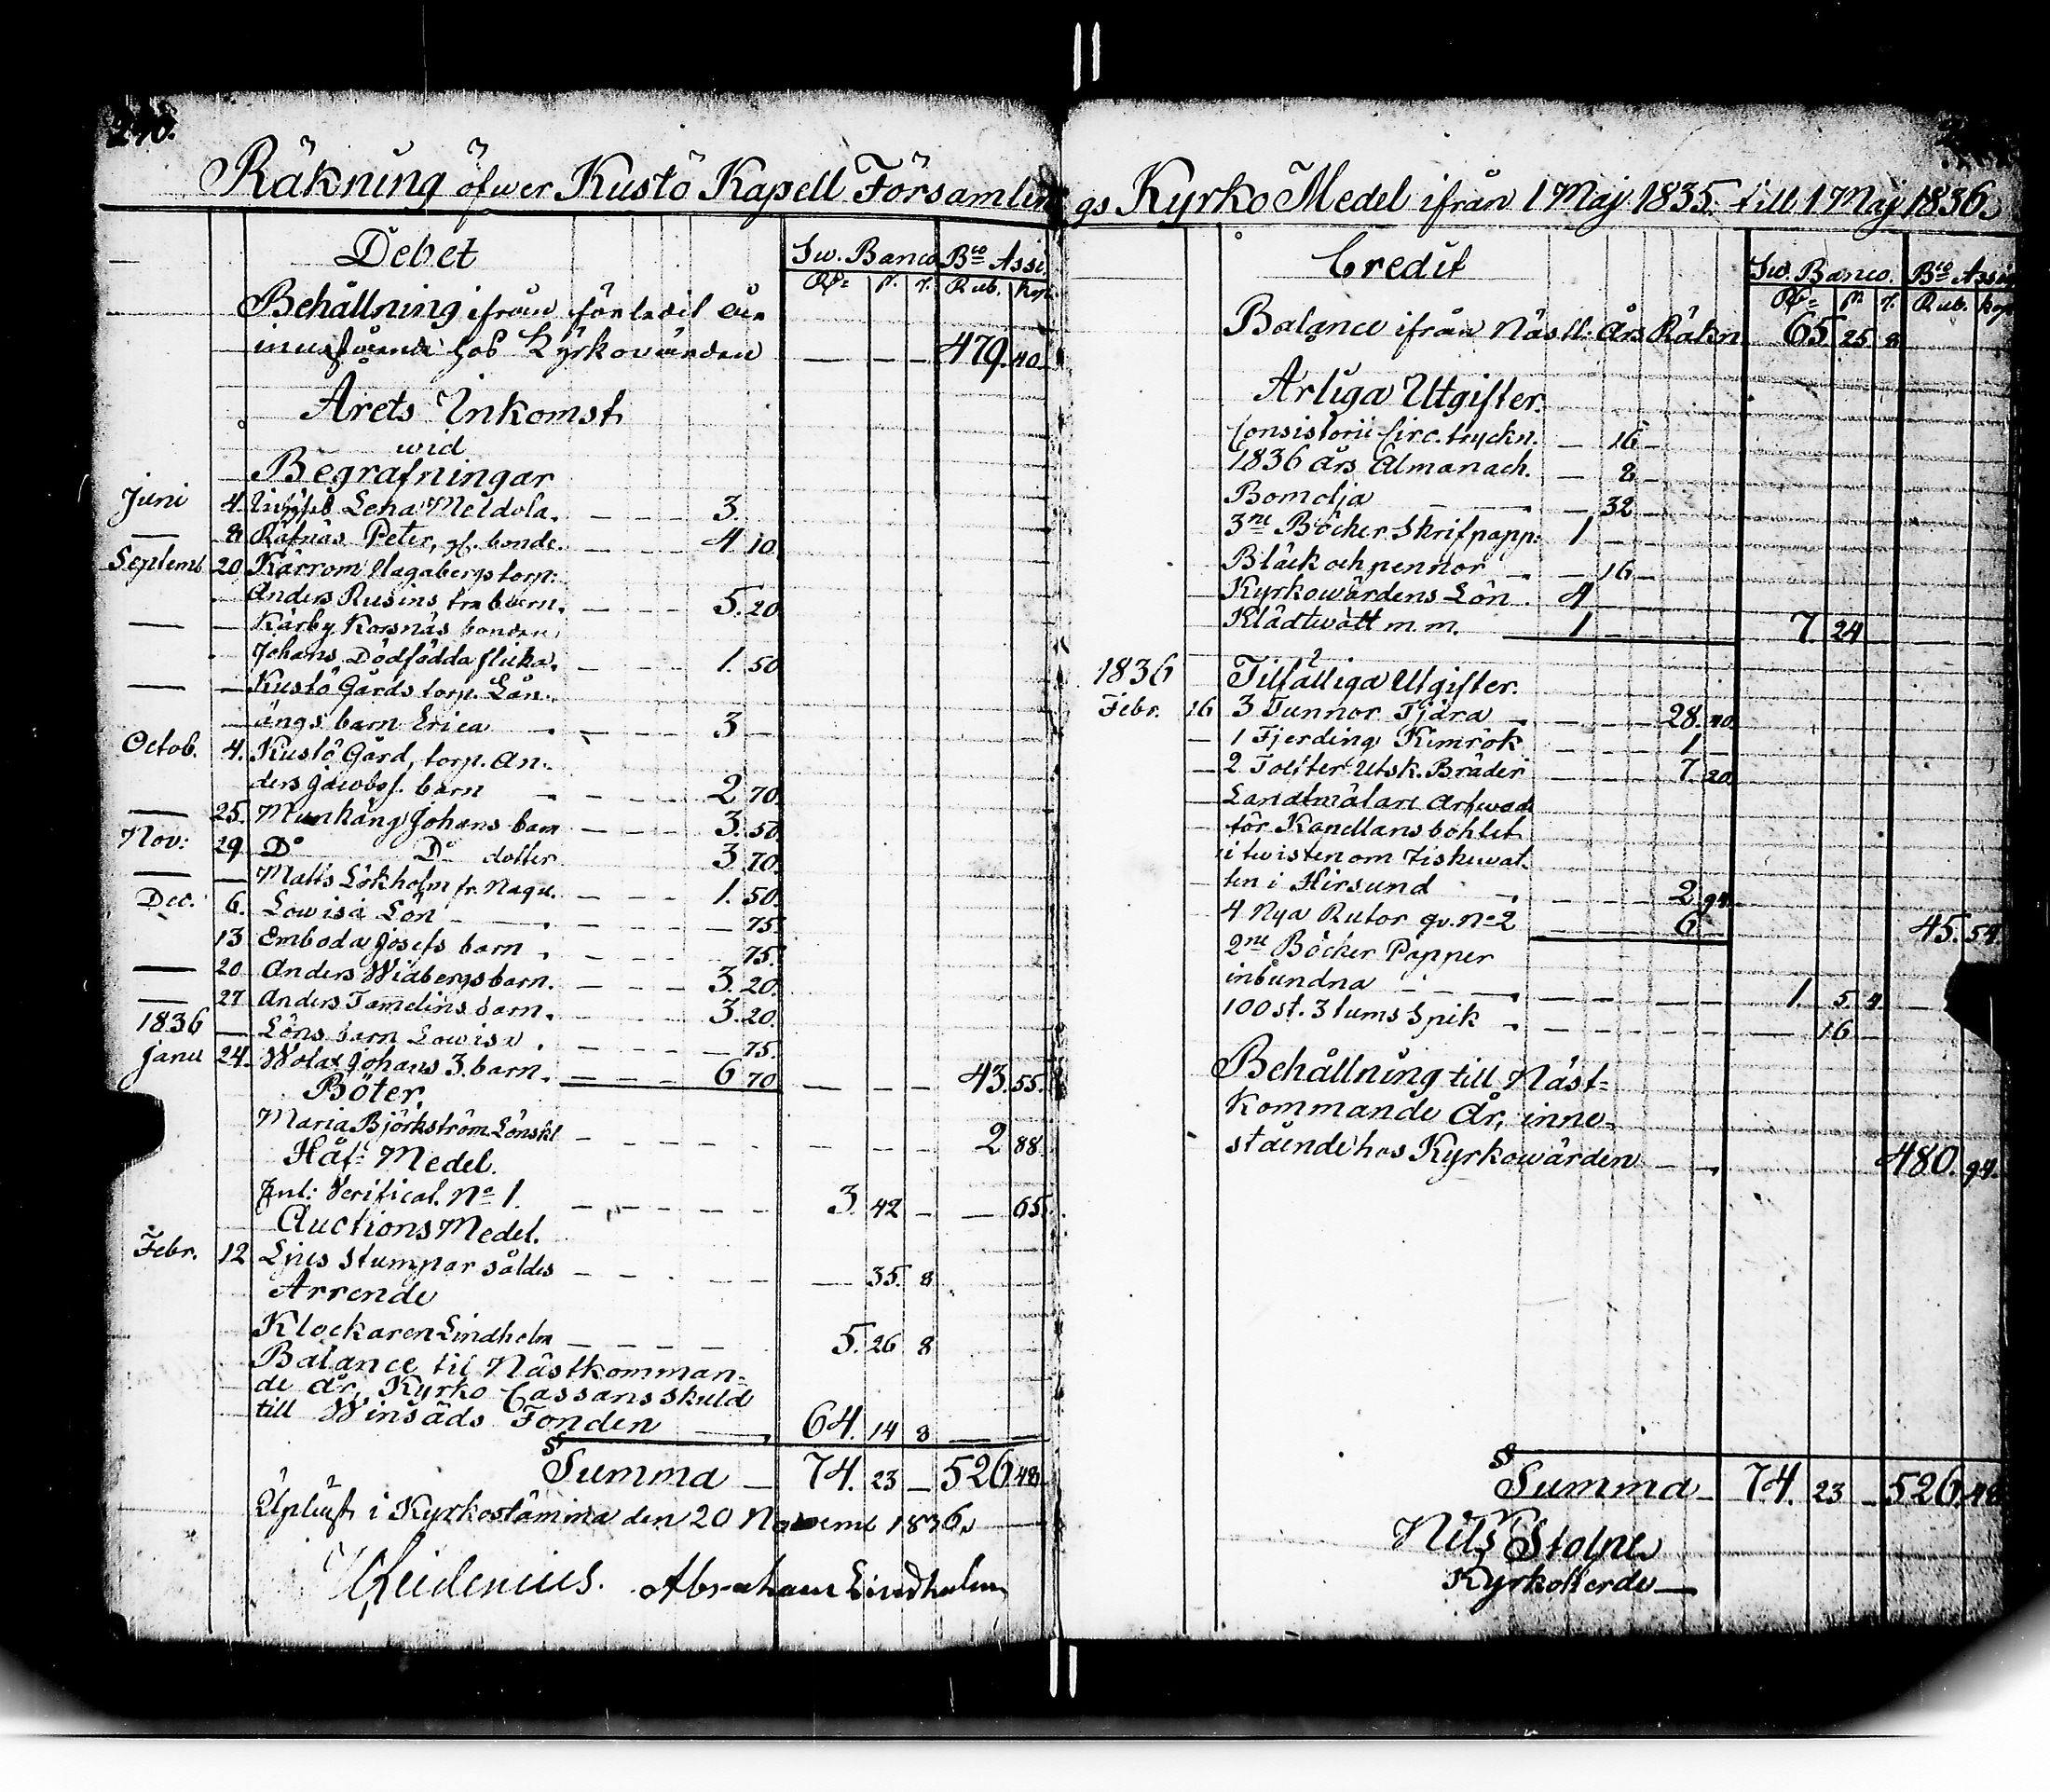 240.
Räkning öfwer Kustö Kapell Församlin
Debet Sw. Banco Bco Assi.
Rub. Kop.
Behållning ifrån
innestående hos Kyrkowärden — — — 479. 40.
Årets Inkomst
wid
Begrafningar
Juni 4. Lena Meldola. — — — 3.
— 8 Räfnäs Peter, bonde. — — — 4 10
Septemb 20 Kärrom Hagabergs torp:
Anders Rusins barn. — — — 5. 20
— Kärby Korsnäs bonden
Johans Dödfödda flicka. — — — 1. 50
— — Kustö Gårds torp. Län.
ängs barn Erica — — — 3 —
Octob. 4. Kustö Gård, torp. An.
ders Jacobss. barn — — — 2 70.
— 25. Munkäng Johans barn — — — 3. 50
Nov: 29 Do Do dotter 3. 70.
— — Matts Lökholm fr. Nagu. — — — 1. 50.
Dec. 6. Lowisa Lön — — — 75.
13 Emboda Josefs barn. 75.
— 20 Anders Widbergs barn. — — — 3. 20.
— 27 Anders Tamelins barn. — — — 3. 20.
1836 — Löns barn Lowisa. — — — 75.
Janu 24. Wolax Johans 3. barn. — — — 6 70 — — — 43. 55.
Böter.
Maria Björkström Lönskl — — — 2 88.
Håf- Medel.
Enl: Verificat. No 1. — — — 3. 42 — — 65.
Auctions Medel.
Febr. 12 Ljus stumpar såldes — — — 35. 8
Arrende
Klockaren Lindholm — — — 5. 26 8
Balance til Nästkomman-
de år, Kyrko Cassans skuld
till Winsäds Fonden — 64. 14 8 — —
Summa — 74. 23 — 526. 48.
Upläst i Kyrkostämma den 20 Novemb 1836.
Abraham Lindholm
gs Kyrko Medel ifrån 1 Maj 1835. till 1 Maj 1836.
Credit Sw. Banco. Bco Assig
Rub. Kop
Balance ifrån Näst. års Räkn. 65 25. 8
Årliga Utgifter.
Consistorii Circ. tryckn. — 16 —
1836 års Almanach. — 8 —
Bomolja — 32 —
3ne Böcker Skrifpapp: 1 — —
Bläck och pennor — — 16 —
Kyrkowärdens Lön. 4
Klädtwätt m. m. 1 — 7. 24
1836 Tilfälliga Utgifter.
Febr. 16 3 Tunnor Tjära — — — 28. 40
— 1 Fjerding Kimrök — — — 1 —
— 2 Tolfter Utsk. Bräder — — — 7. 20
— Landtmätare Arfwod
för Kapellans bohlet
i twisten om Fiskewat.
ten i Hirsund — — — 2. 94.
4 Nya Rutor qv. No 2 — — — 6. — 45. 54.
2ne Böcker Papper
inbundna — — — 1. 5 4.
100 st. 3 tums Spik — — — 16 —
Behållning till Näst-
kommande År, inne-
stående hos Kyrkowärden — 480. 94.
Summa — 74. 23 — 526. 48
Nils Stolpe